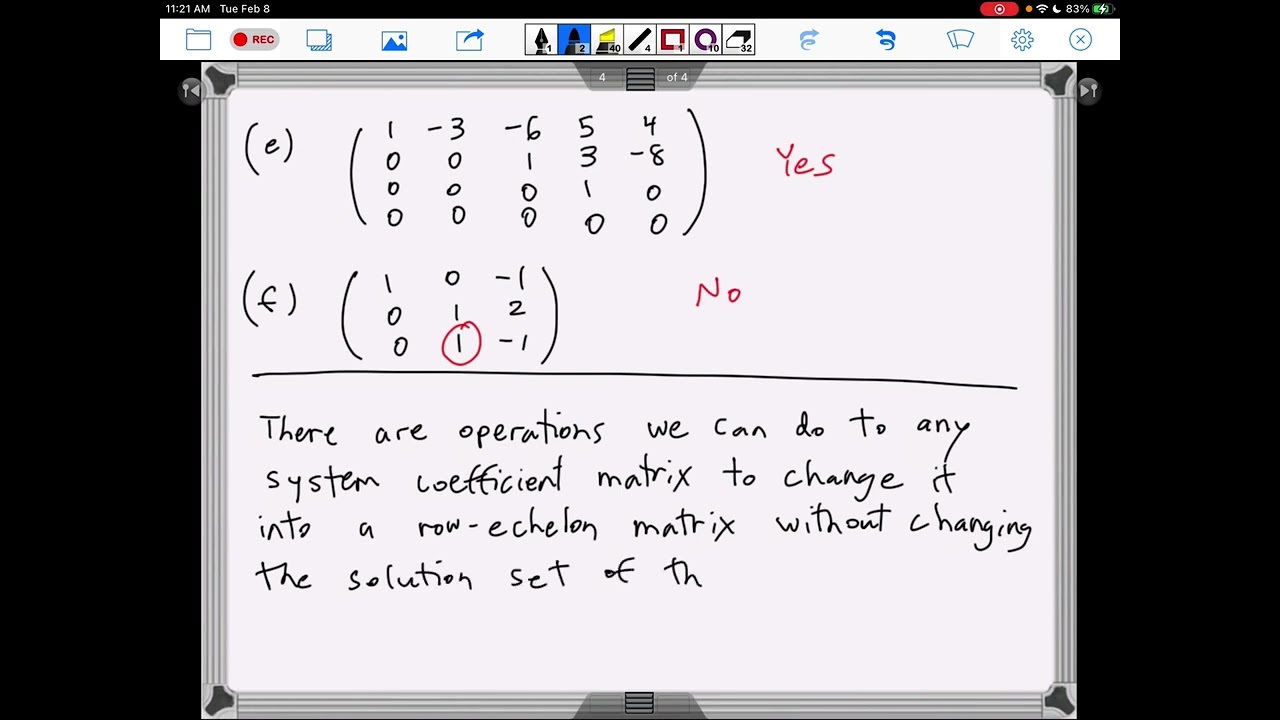 11:21 AM Tue Feb 8
83%
REC
1 2 40 4 1 10 32
4 of 4
(e) 1 -3 -6 5 4
0 0 1 3 -8 Yes
0 0 0 1 0
0 0 0 0 0
(f) 1 0 -1
0 1 2 No
0 1 -1
There are operations we can do to any
system coefficient matrix to change it
into a row-echelon matrix without changing
the solution set of th